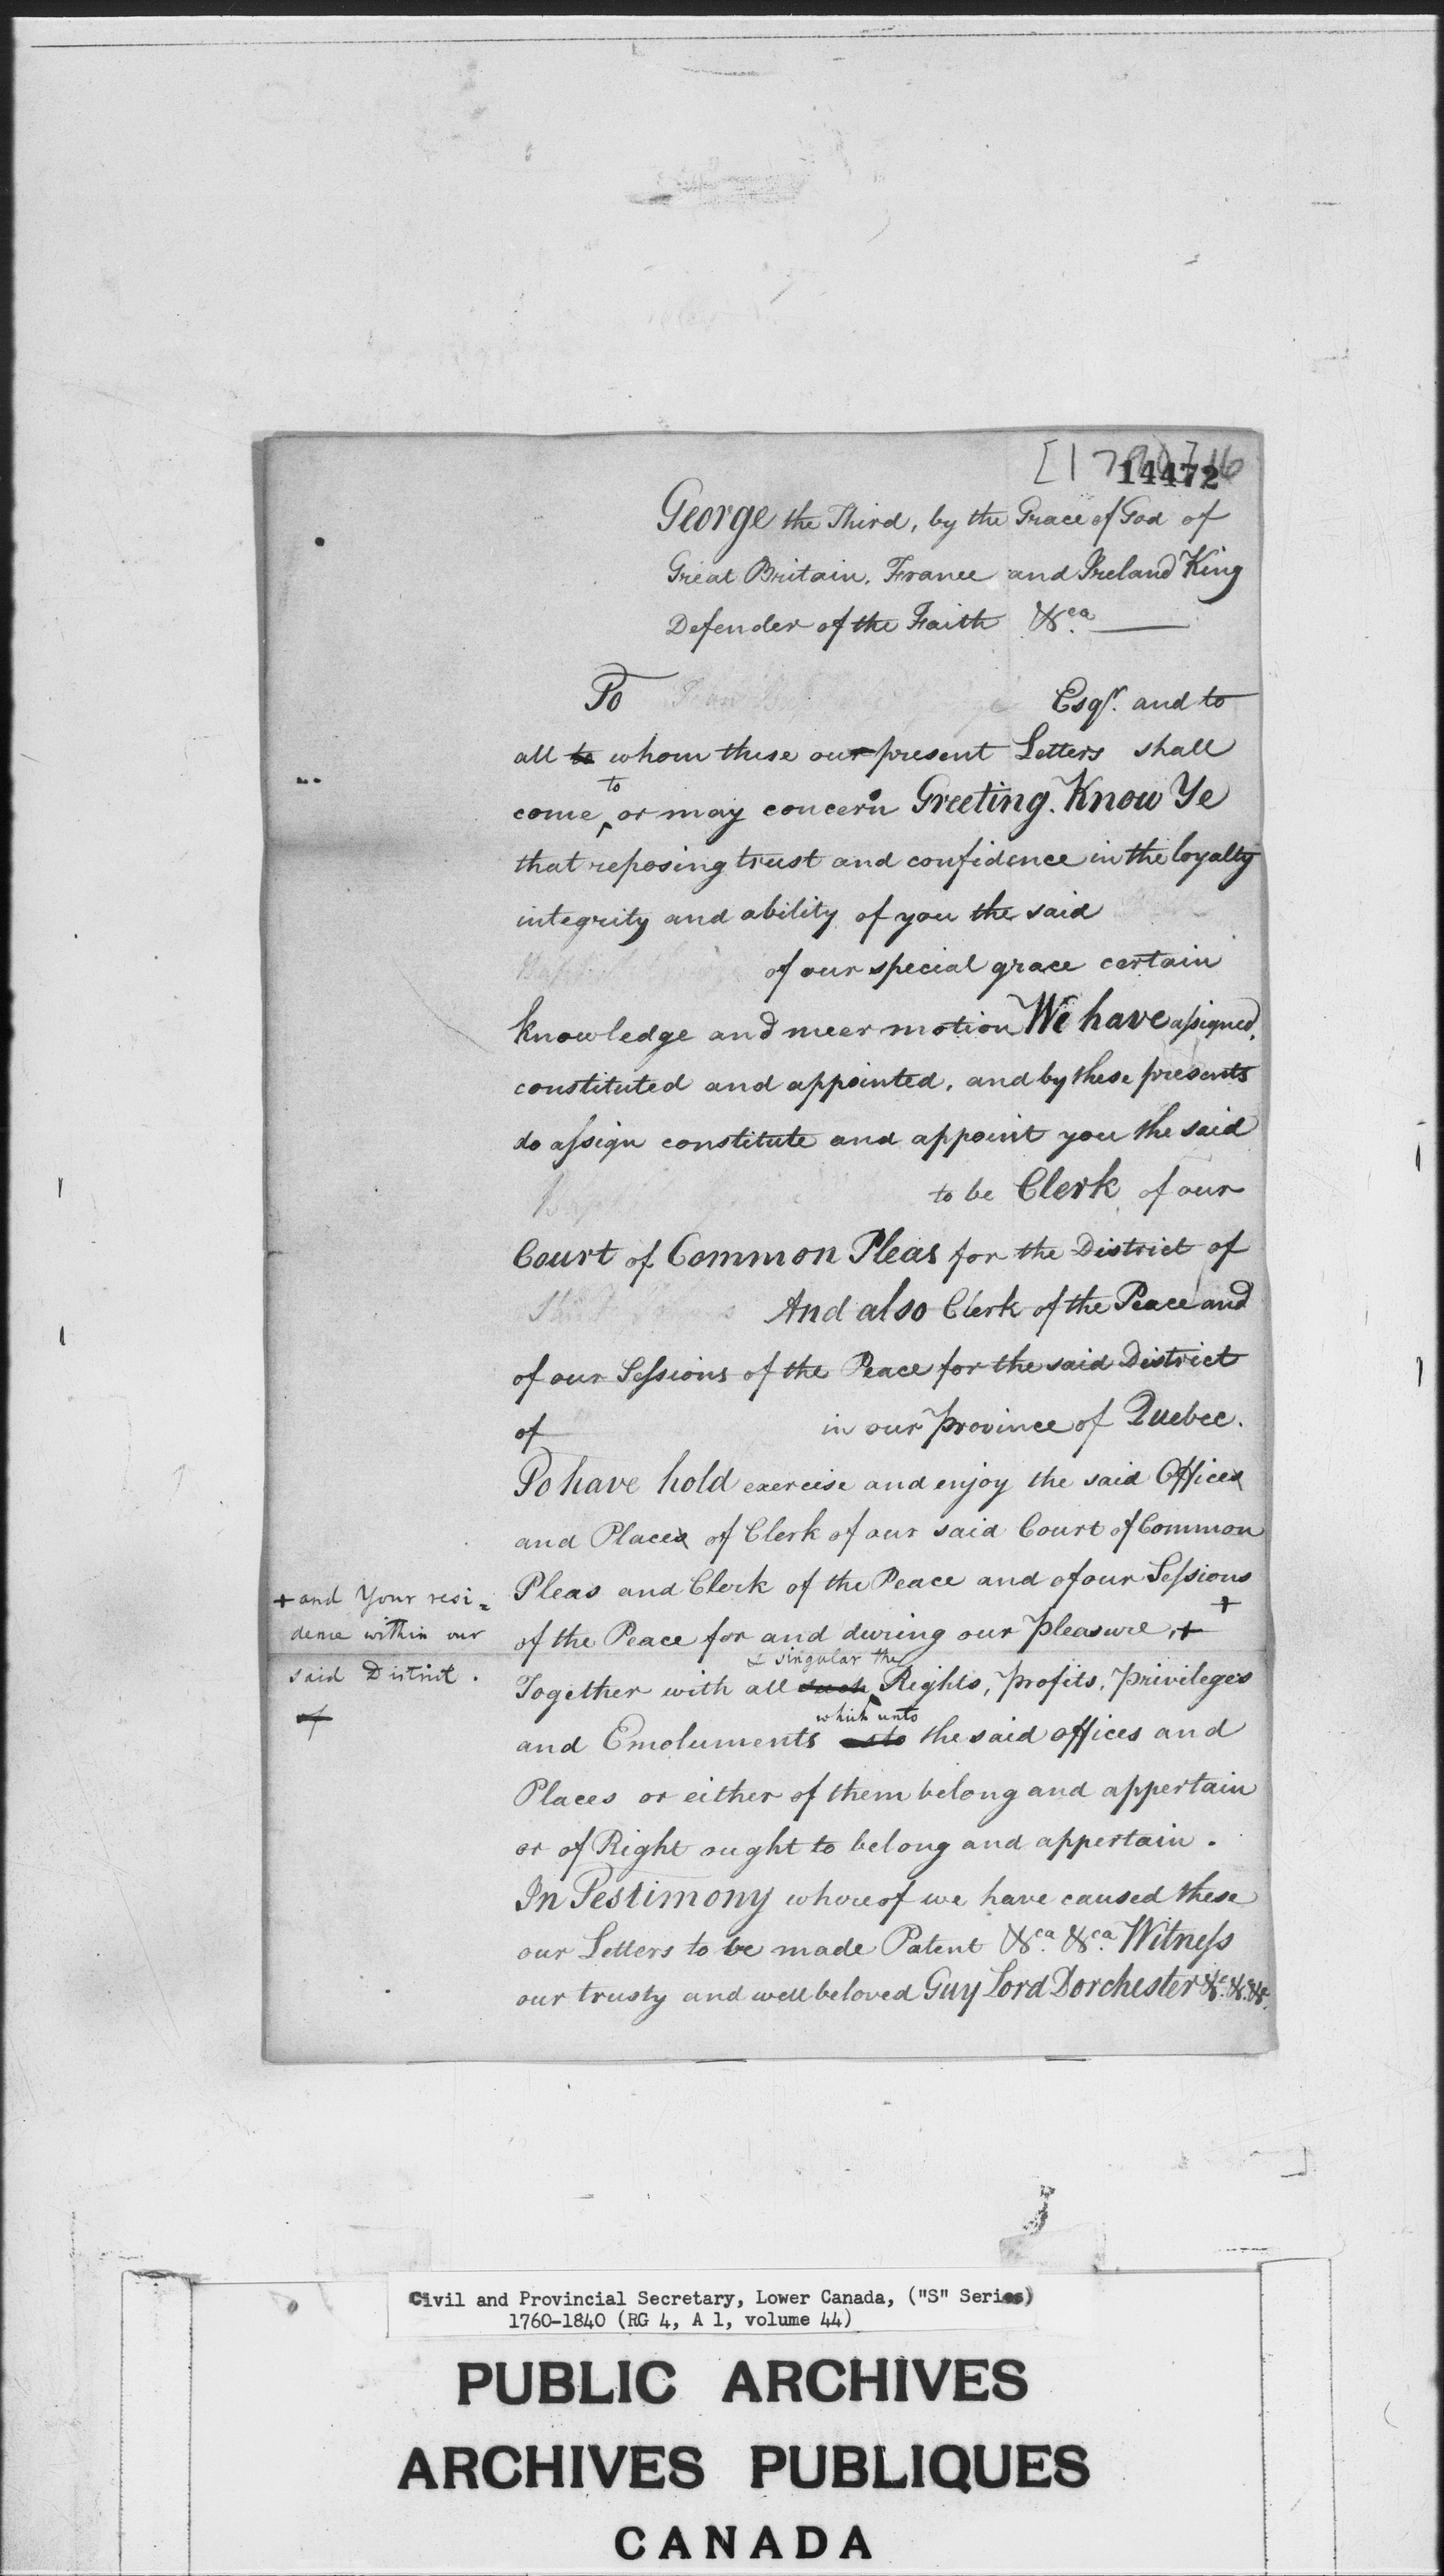 14472
George the Third, by the Grace of God of
Great Britain, France and Ireland King
Defender of the Faith &ca.
To Esqr. and to
all to whom these our present Letters shall
come to or may concern Greeting. Know Ye
that reposing trust and confidence in the loyalty
integrity and ability of you the said
of our special grace certain
knowledge and meer motion We have assigned,
constituted and appointed, and by these presents
do assign constitute and appoint you the said
to be Clerk of our
Court of Common Pleas for the District of
And also Clerk of the Peace and
of our Sessions of the Peace for the said District
of in our province of Quebec.
To have hold exercise and enjoy the said Offices
and Places of Clerk of our said Court of Common
Pleas and Clerk of the Peace and of our Sessions
+ and Your resi=
dence within our
said District.
of the Peace for and during our pleasure, +
& singular the
Together with all such Rights, profits, privileges
which unto
and Emoluments as to the said offices and
Places or either of them belong and appertain
or of Right ought to belong and appertain.
In Testimony whereof we have caused these
our Letters to be made Patent &ca. &ca. Witness
our trusty and well beloved Guy Lord Dorchester &c. &c. &c.
Civil and Provincial Secretary, Lower Canada, ("S" Series)
1760-1840 (RG 4, A 1, volume 44)
PUBLIC ARCHIVES
ARCHIVES PUBLIQUES
CANADA